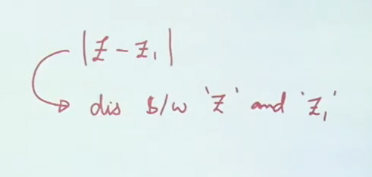 |Z - Z₁|
dis b/w 'Z' and 'Z₁'